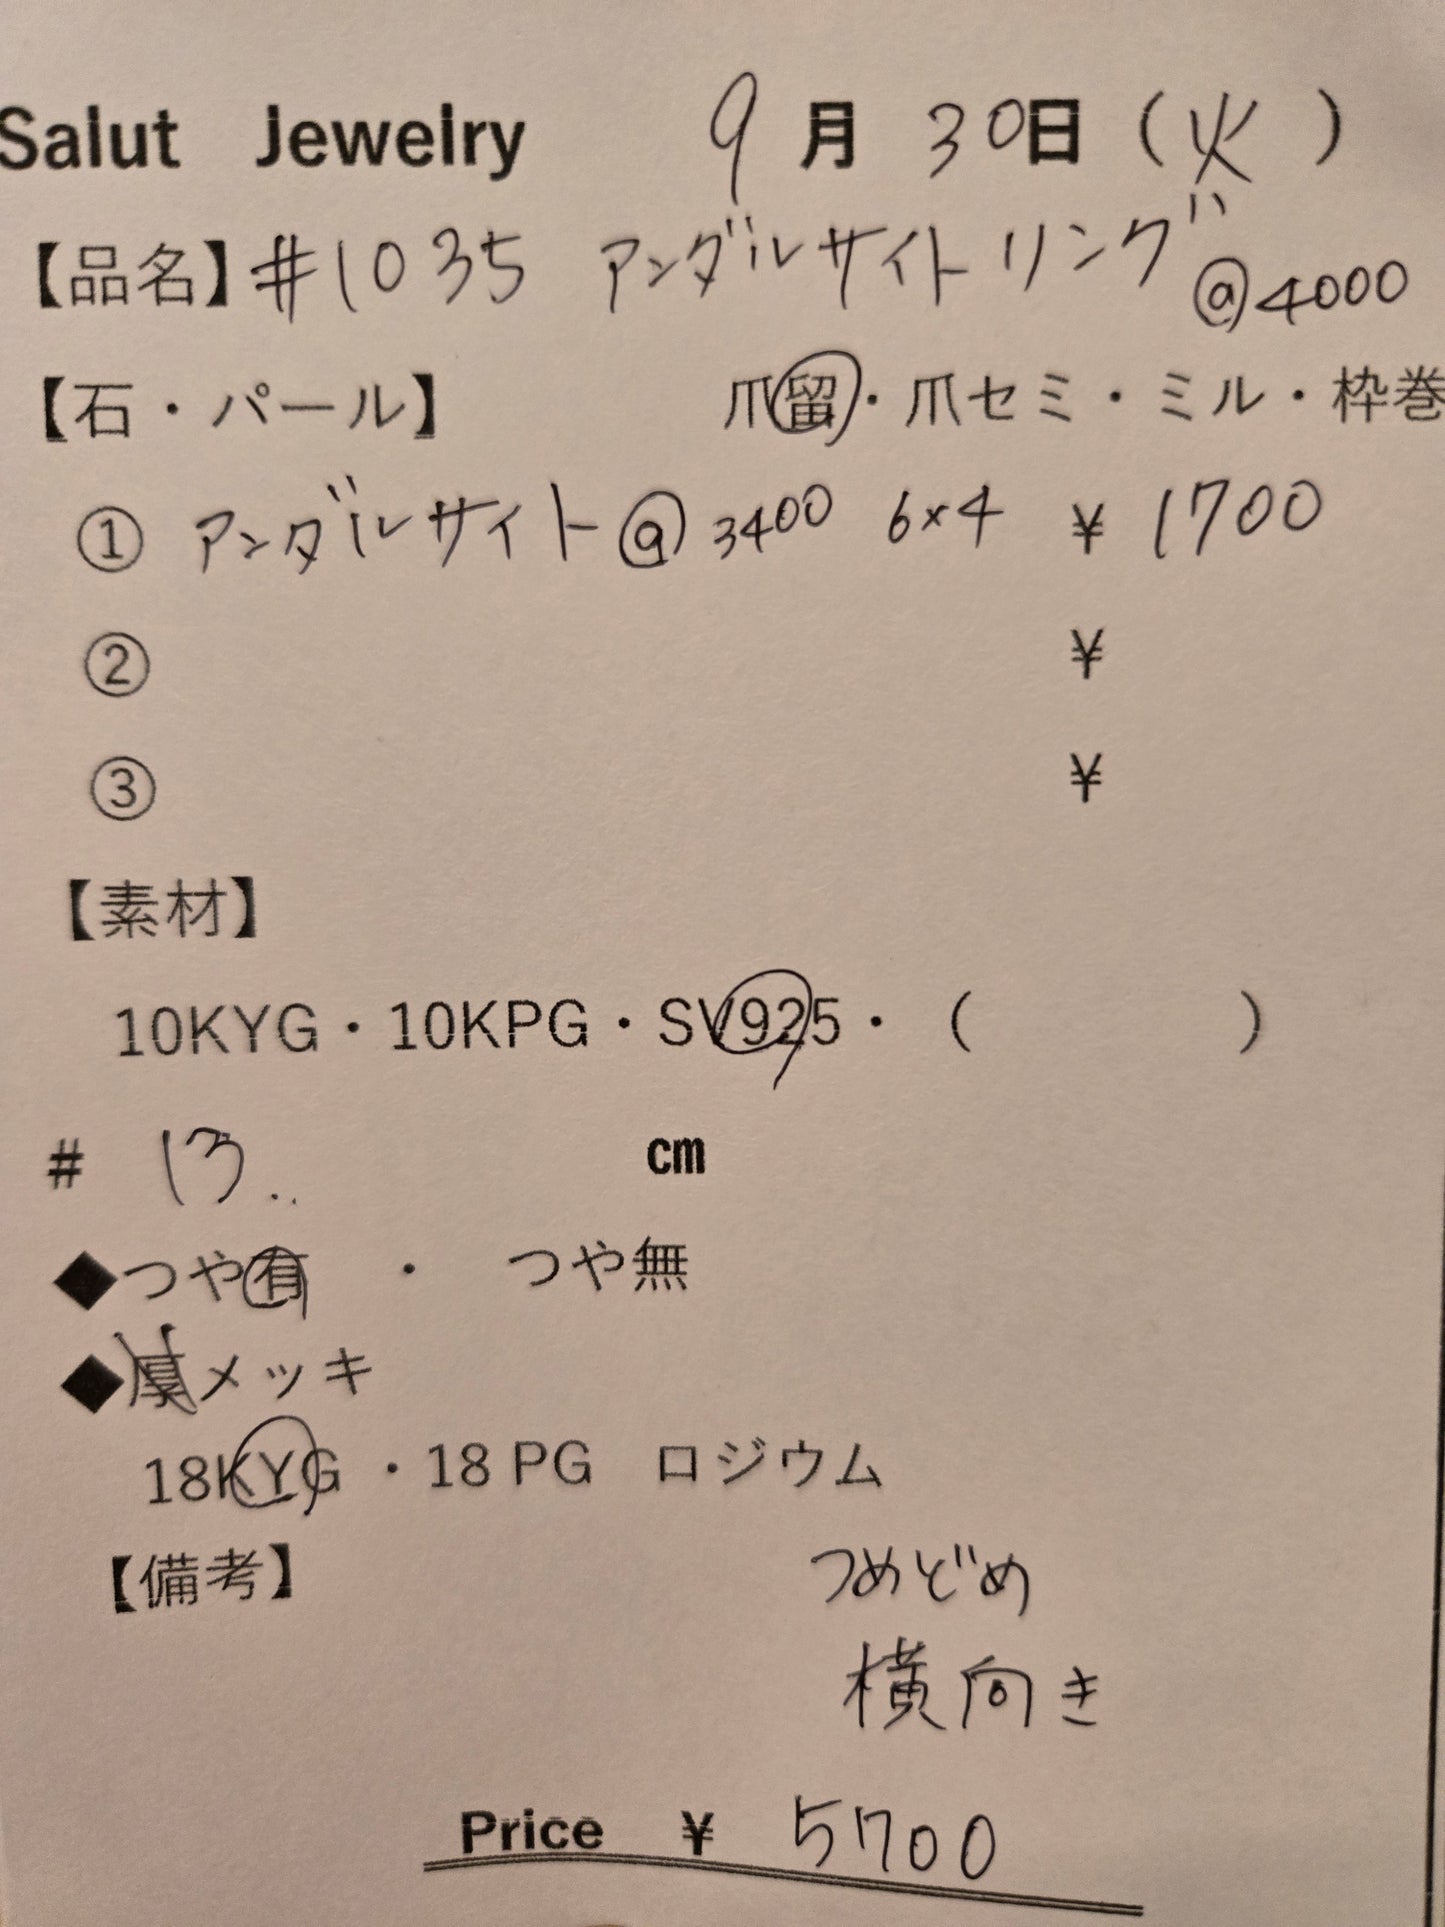 Salut Jewelry 9月30日(火)
【品名】#1035 アンダルサイトリング @4000
【石・パール】 爪留・爪セミ・ミル・枠巻
① アンダルサイト @3400 6×4 ¥1700
② ¥
③ ¥
【素材】
10KYG・10KPG・SV925・( )
# 13.. cm
◆つや有 ・ つや無
◆厚メッキ
18KYG ・18 PG ロジウム
【備考】 つめどめ
横向き
Price ¥ 5700